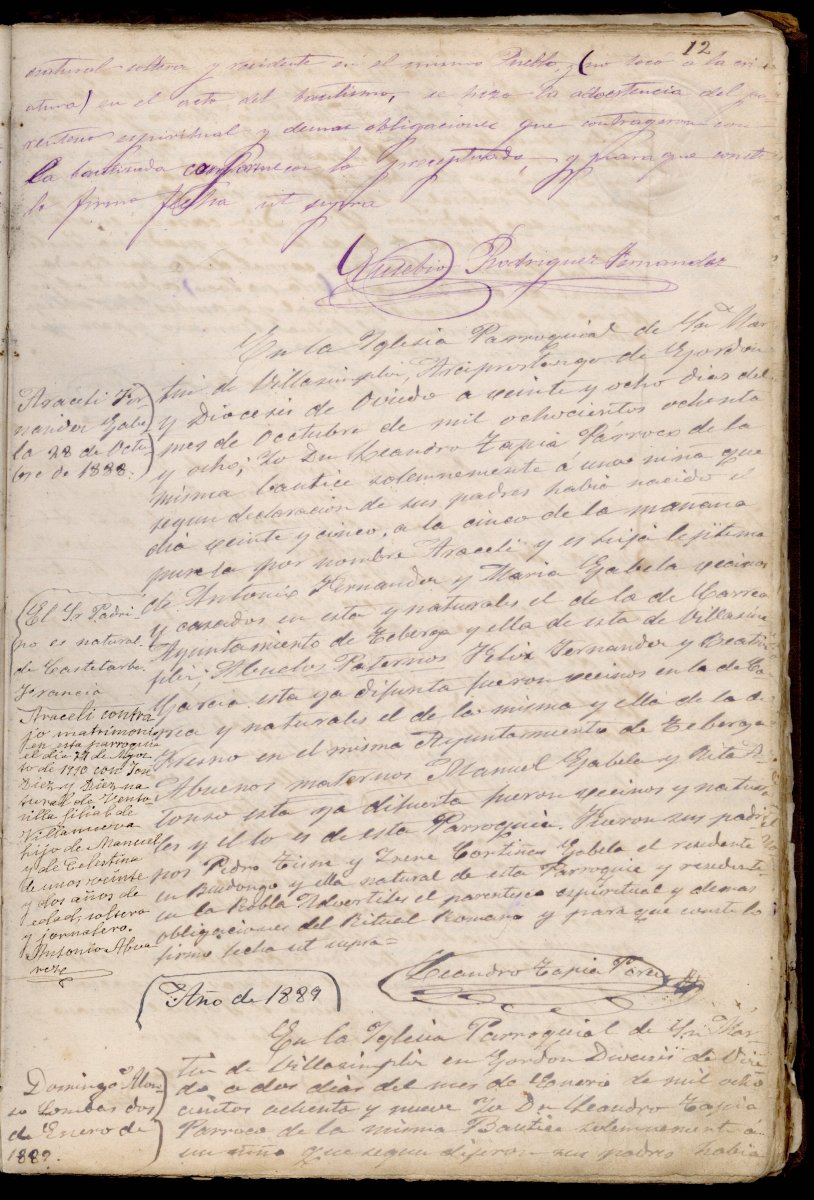 12
natural soltera y residente en el mismo Pueblo, (no tocó a la cri-
atura) en el acto del bautismo, se hizo la advertencia del pa-
rentesco espiritual y demas obligaciones que contrageron con
la bautizada conforme con lo preceptuado, y para que conste
lo firmo fecha ut supra
Eusebio Rodriguez Fernandez
Araceli Fer
nandez Gabe
la 28 de Octu
bre de 1888.
En la Iglesia Parroquial de Sn. Mar
tin de Villasimpliz, Arciprestazgo de Gordon
y Diocesis de Oviedo a veinte y ocho dias del
mes de Occtubre de mil ochocientos ochenta
y ocho; Yo Dn. Leandro Tapia Párroco de la
misma bautice solemnemente á una niña que
segun declaracion de sus padres habia nacido el
dia veinte y cinco, a la cinco de la mañana
puse la por nombre Araceli y es hija lejitima
de Antonio Fernandez y Maria Gabela vecinos
y casados en esta y naturales el de la de
Ayuntamiento de Teberga y ella de esta de Villasim
pliz; Abuelos Paternos Felix Fernandez y Beatriz
Garcia esta ya difunta fueron vecinos en la de
y naturales el de la misma y ella de la de
Fresno en el misma Ayuntamiento de Teberga
Abuenos maternos Manuel Gabela y Rita A
lonso esta ya difunta fueron vecinos y natura
les y el lo es de esta Parroquia. Fueron sus padri
nos Pedro y Irene Cortiñas Gabela el residente
en Busdongo y ella natural de esta Parroquia y residente
en la Robla Advertiles el parentesco espiritual y demas
obligaciones del Ritual Romano y para que conste lo
firmo fecha ut supra=
Leandro Tapia
El Sr Padri
no es natural
de
Francia
Araceli contra
jo matrimonio
en esta parroquia
el dia 27 de Agos
to de 1910 con José
Diez y Diez na
tural de Vento
silla filial de
Villanueva
hijo de Manuel
y de Celestina
de unos veinte
y dos años de
edad, soltero
y jornalero.
Antonio Alva
rez
Año de 1889
Domingo Alon
so Lombas dos
de Enero de
1889.
En la Iglecia Parroquial de Sn. Mar
tin de Villasimpliz en Gordon Diocesis de Ovie
do a dos dias del mes de Enero de mil ocho
cientos ochenta y nueve Yo Dn. Leandro Tapia
Parroco de la misma Bautice solemnemente á
un niño que segun dijeron sus padres habia